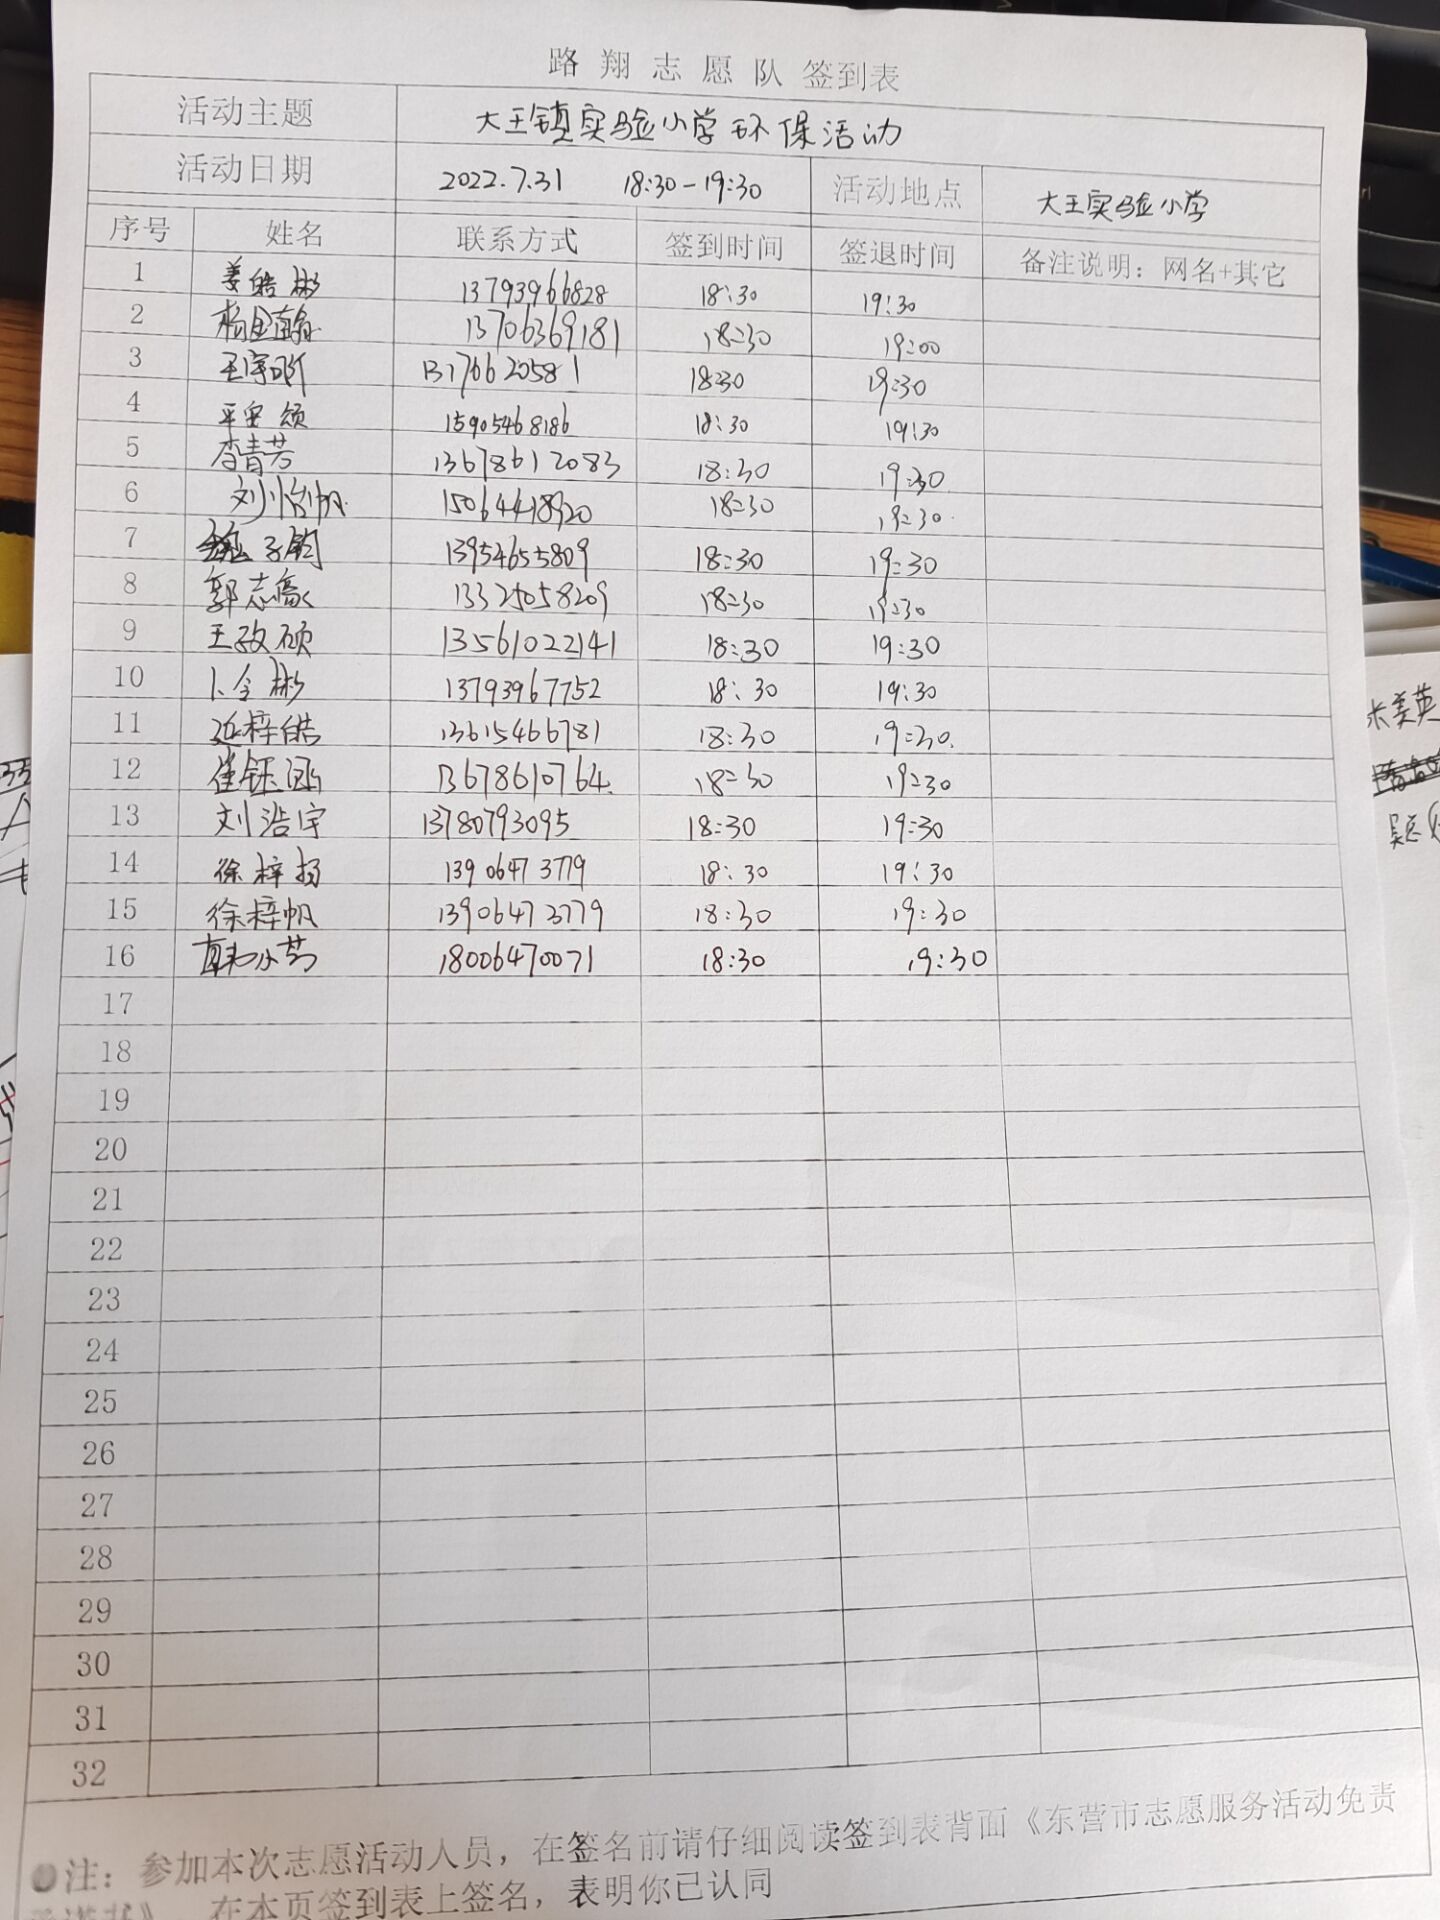 路翔志愿队签到表
活动主题 大王镇实验小学环保活动
活动日期 2022.7.31 18:30-19:30 活动地点 大王实验小学
序号 姓名 联系方式 签到时间 签退时间 备注说明：网名+其它
1 姜皓彬 13793966828 18:30 19:30
2 13706369181 18:30 19:00
3 13176620581 18:30 19:30
4 15905468186 18:30 19:30
5 李青芳 13678612083 18:30 19:30
6 刘怡帆 15064418920 18:30 19:30
7 子钧 13954655809 18:30 19:30
8 郭志豪 13325058209 18:30 19:30
9 王孜硕 13561022141 18:30 19:30
10 卜令彬 13793967752 18:30 19:30
11 梓皓 13615466781 18:30 19:30
12 崔钰涵 13678610764 18:30 19:30
13 刘浩宇 13780793095 18:30 19:30
14 徐梓扬 13906473779 18:30 19:30
15 徐梓帆 13906473779 18:30 19:30
16 韩小芳 18006470071 18:30 19:30
17
18
19
20
21
22
23
24
25
26
27
28
29
30
31
32
注：参加本次志愿活动人员，在签名前请仔细阅读签到表背面《东营市志愿服务活动免责
》 在本页签到表上签名，表明你已认同
米美英